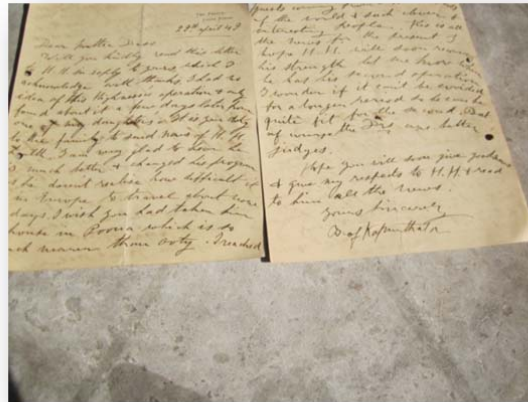 29th April 49
Dear Mother
Will you kindly read this letter
to H.H. in reply to yours which I
acknowledge with thanks. I had no
idea of His Highnesses operation & only
found about it a few days later from
my daughters. It is your duty
to the family to send news of H.H.
I am very glad to know he
is much better & changed his program
doesn't realise how difficult it
in Europe to travel about
days. I wish you had taken him
house in Poona which is so
much nearer than Ooty. I reached
guests coming from
of the world & such clever &
interesting people. This is all
the news for the present. I
hope H.H. will soon recover
his strength. Let me know when
he has his second operation
I wonder if it can't be avoided
for a longer period so he can be
quite fit for the second. But
of course the Drs are better
judges.
Hope you will soon give
& give my respects to H.H. & read
to him all the news.
Yours Sincerely